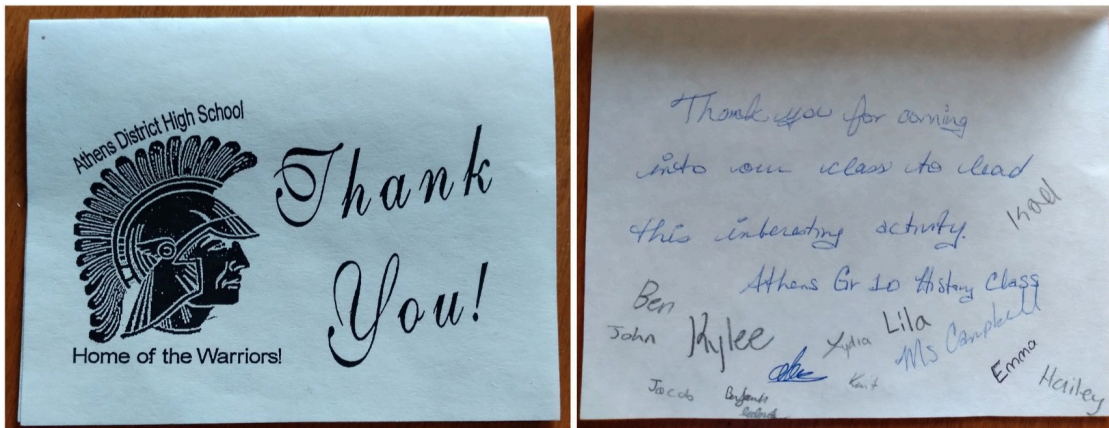 Athens District High School
Thank
You!
Home of the Warriors!
Thank you for coming
into our class to lead
this interesting activity.
Athens Gr 10 History Class
Kael
Ben
John
Kylee
Lydia
Lila
Ms Campbell
Emma
Hailey
Jacob